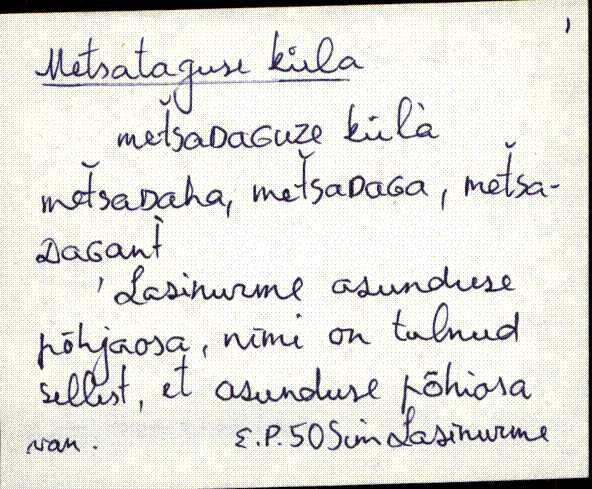 Metsataguse küla
meťsaᴅaɢuze külà
meťsaᴅaha, meťsaᴅaɢa, meťsa-
ᴅaɢanť
'Lasinurme asunduse
põhjaosa, nimi on tulnud
sellest, et asunduse põhiosa
van. E.P. 50 Sim Lasinurme